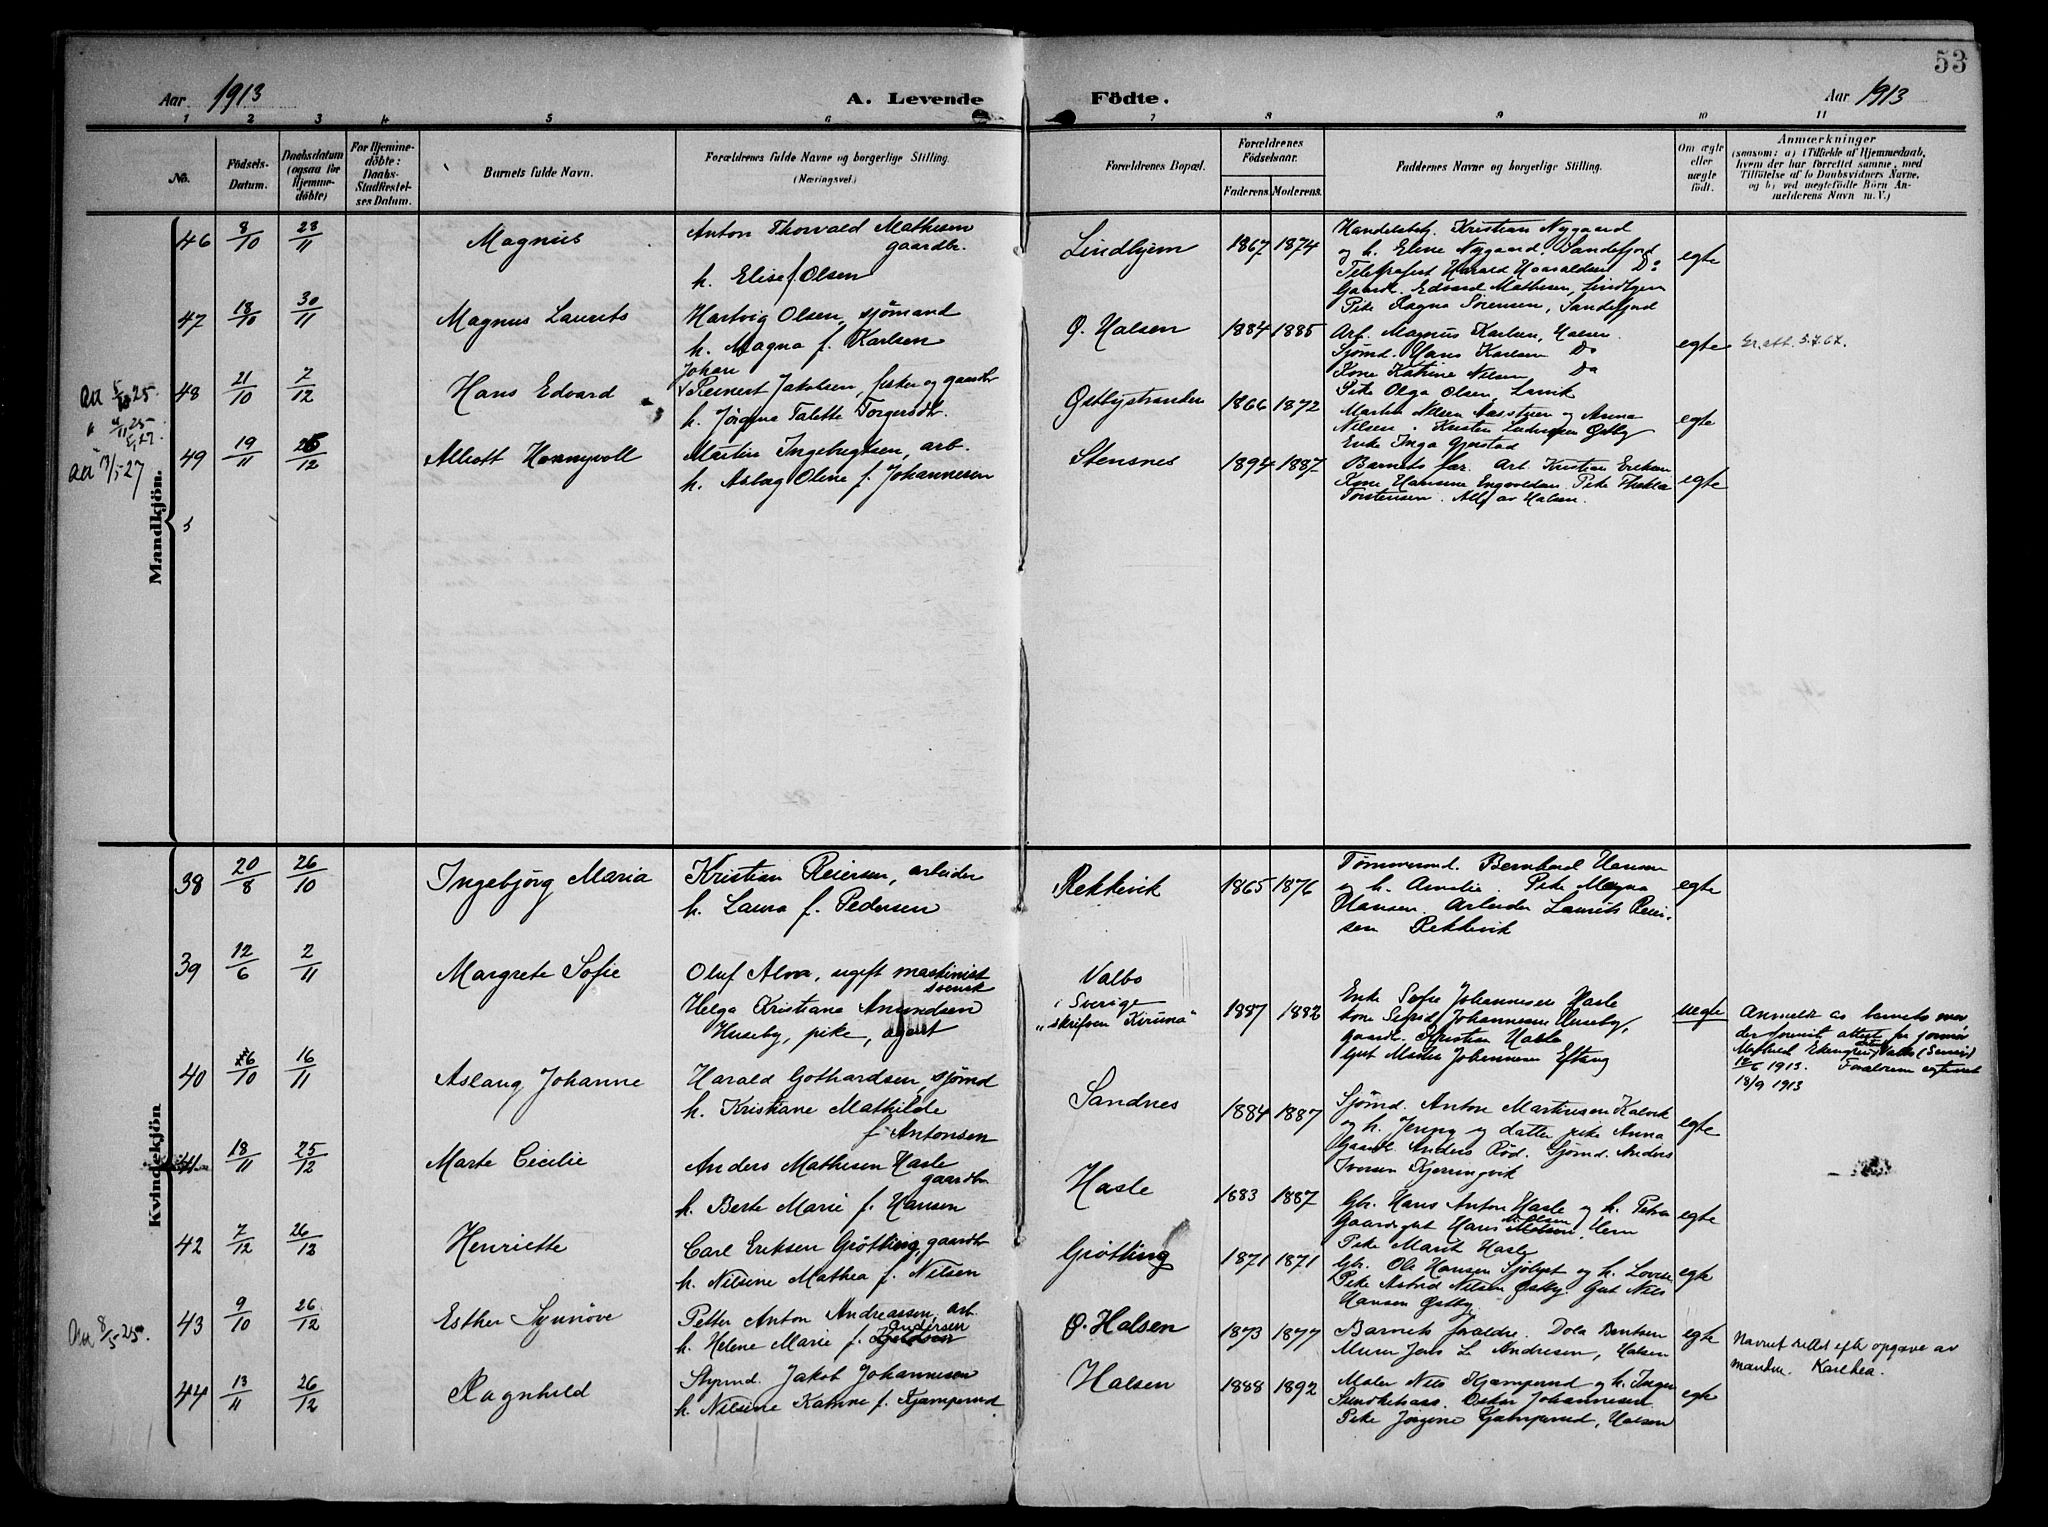 53
Aar 1913 A. Levende Födte. Aar 1913
1 2 3 4 5 6 7 8 9 10 11
No.
Födsels-Datum.
Daabsdatum (ogsaa for Hjemme-döbte)
For Hjemme-döbte: Daabs-Stadfæstel-ses Datum.
Barnets fulde Navn.
Forældrenes fulde Navne og borgerlige Stilling.
(Næringsvei.)
Forældrenes Bopæl.
Forældrenes Födselsaar.
Faderens. Moderens.
Faddernes Navne og borgerlige Stilling.
Om ægte eller uægte födt.
Anmærkninger
(saasom: a) i Tilfælde af Hjemmedaab,
hvem der har forrettet samme, med
Tilföielse af to Daabsvidners Navne,
og b) ved uægtefödte Börn An-
melderens Navn m. V.)
Mandkjön.
46 8/10 23/11 Magnus
Anton Thorvald Mathisen
gaardbr.
h. Elise f. Olsen
Lindhjem 1867 1874
Handelsbg. Kristian Nygaard
og h. Elene Nygaard, Sandefjord
Telegrafist Harald Do
Gaardbr. Edvard Mathisen, Lindhjem
Pike Ragna Sørensen, Sandefjord
egte
47 18/10 30/11 Magnus Laurits
Hartvig Olsen, sjømand
h. Magna f. Karlsen
Ø. Halsen 1884 1885
Arb. Magnus Karlsen, Halsen
Sjømd. Hans Karlsen Do
Kone Katrine Nilsen Do
Pike Olga Olsen, Larvik
egte
5.7.67.
48 21/10 7/12 Hans Edvard
Johan
Reinert Jakobsen, fisker og gaardbr
h. Jørgine Talette Torgersdtr.
Østbystranden 1866 1872
Martin Nilsen og Anna
Nilsen. Kristen Ludvigsen Østby
Enke Inga Gjerstad
egte
25
25
27.
49 19/11 26/12
Martin Ingebrigtsen, arb.
h. Aslaug Oline f. Johannesen
Stensnes 1894 1887
Barnets far. Arb. Kristian Eriksen
Kone Hansine Engvoldsen. Pike Thekla
Torstensen. Alle av Halsen.
egte
13/5-27
5
Kvindekjön
38 20/8 26/10 Ingebjørg Maria
Kristian Reiersen, arbeider
h. Laura f. Pedersen
Rekkevik 1865 1876
Tømmermd. Bernhard Hansen
og h. Amalie. Pike Magna
Hansen. Arbeider Laurits Reier-
sen Rekkevik
egte
39 12/6 2/11 Margrete Sofie
Oluf Alm, ugift maskinist
svensk
Helga Kristiana Amundsen
Huseby, pike, ugift
Valbo
i Sverige
"skrifven Kiruna"
1887 1882
Enke Sofie Johannesen Hasle
kone Sigrid Johannesen Huseby,
gaardbr. Kristian Hasle
Gut Mathis Johannesen Eftang
uegte
Anmeldt av barnets mo-
der ifølge attest fra jormor
Ekengren, Valbo (Sverige)
12/6 1913. Forældrene egteviet
18/9 1913
40 26/10 16/11 Aslaug Johanne
Harald Gothardsen, sjømd
h. Kristiane Mathilde
f. Antonsen
Sandnes 1884 1887
Sjømd. Anton Martinsen Kalvik
og h. Jenny og datter pike Anna
Gaardbr. Anders Rød. Sjømd. Anders
Iversen Kjerringvik
egte
41 18/11 25/12 Marte Cecilie
Anders Mathisen Hasle
gaardbr
h. Berte Marie f. Hansen
Hasle 1883 1887
Gbr. Hans Anton Hasle og h. Petra
Gaardsgut Hans Olsen, Hem
Pike Marit Hasle
egte
42 7/12 26/12 Henriette
Carl Eriksen Grøtting, gaardbr
h. Nilsine Mathea f. Nilsen
Grøtting 1871 1871
Gbr. Ole Hansen Sjølyst og h. Lovise
Pike Astrid Nilsen Østby. Gut Nils
Hansen Østby
egte
8/5 25.
43 9/10 26/12 Esther Synnøve
Petter Anton Andreassen, arb.
h. Helene Marie f. Andersen
Ø. Halsen 1873 1877
Barnets foreldre. Dola Bentsen
Murer Jens L. Andresen, Halsen
egte
Navnet rettet efter opgave av
manden. Karthea.
44 13/11 26/12 Ragnhild
Styrmd. Jakob Johannesen
h. Nilsine Katrine f. Kjæmperud
Halsen 1888 1892
Maler Nils Kjæmperud og h. Inger
Oskar Johannesen
Pike Jørgine Kjæmperud, Halsen
egte